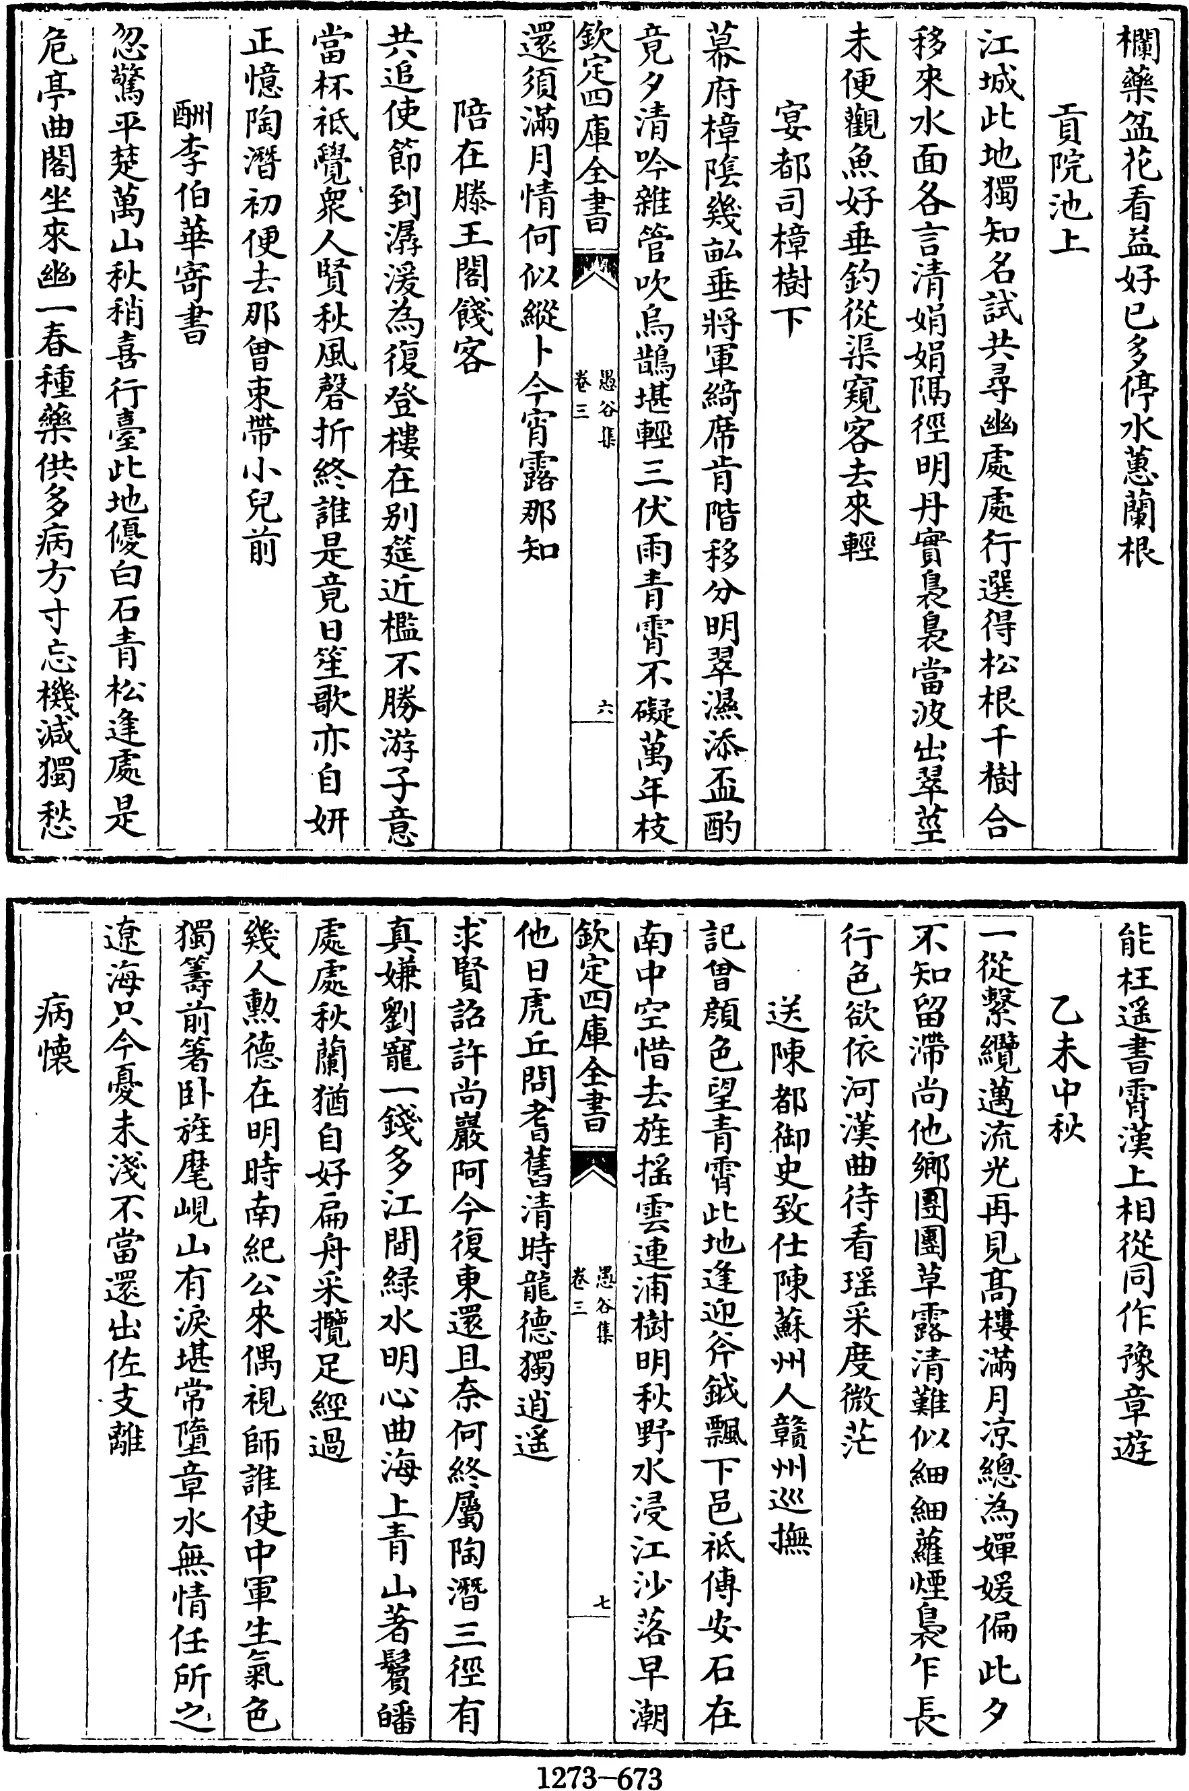 欄藥盆花看益好已多停水蕙蘭根
貢院池上
江城此地獨知名試共尋幽處處行選得松根千樹合
移來水面各言清娟娟隔徑明丹實裊裊當波出翠莖
未便觀魚好垂釣從渠窺客去來輕
宴都司樟樹下
幕府樟陰幾畝垂將軍綺席肯階移分明翠濕添盃酌
竟夕清吟雜管吹烏鵲堪輕三伏雨青霄不礙萬年枝
欽定四庫全書
愚谷集
卷三
六
還須滿月情何似縱卜今宵露那知
陪在滕王閣餞客
共追使節到潺湲為復登樓在别筵近檻不勝游子意
當杯祇覺衆人賢秋風磬折終誰是竟日笙歌亦自妍
正憶陶潛初便去那曾束帶小兒前
酬李伯華寄書
忽驚平楚萬山秋稍喜行臺此地優白石青松逢處是
危亭曲閣坐來幽一春種藥供多病方寸忘機減獨愁
能枉遥書霄漢上相從同作豫章遊
乙未中秋
一從繫纜邁流光再見髙樓滿月凉總為嬋媛偏此夕
不知留滯尚他鄉團團草露清難似細細蘿煙裊乍長
行色欲依河漢曲待看瑶采度微茫
送陳都御史致仕陳蘇州人贛州巡撫
記曾顔色望青霄此地逢迎斧鉞飄下邑祇傳安石在
南中空惜去旌揺雲連浦樹明秋野水浸江沙落早潮
欽定四庫全書
愚谷集
卷三
七
他日虎丘問耆舊清時龍德獨逍遥
求賢詔許尚巖阿今復東還且奈何終屬陶潛三徑有
真嫌劉寵一錢多江間緑水明心曲海上青山著鬢皤
處處秋蘭猶自好扁舟采攬足經過
幾人勲德在明時南紀公來偶視師誰使中軍生氣色
獨籌前箸卧旌麾峴山有淚堪常墮章水無情任所之
遼海只今憂未淺不當還出佐支離
病懷
1273-673